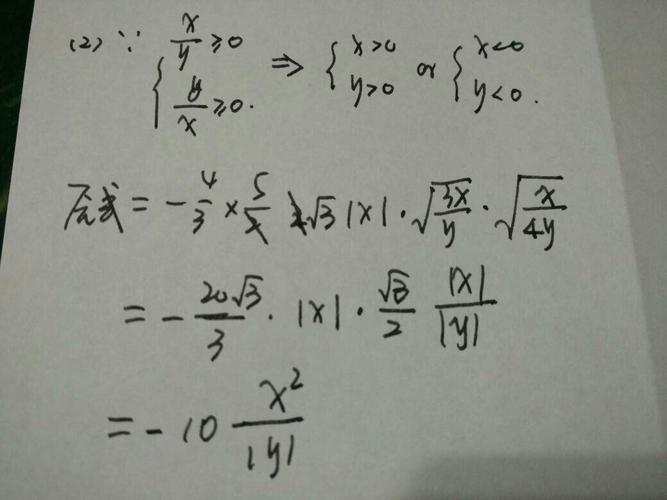 (2) ∵ { x/y ≥ 0 ⇒ { x>0 or { x<0
y/x ≥ 0. y>0 y<0.
原式 = - 4/3 × 5/x √3 |x| · √(3x/y) · √(x/4y)
= - 20√3/3 · |x| · √3/2 |x|/|y|
= -10 x²/|y|